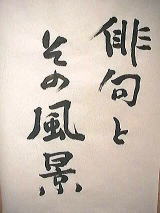 俳句と
その風景